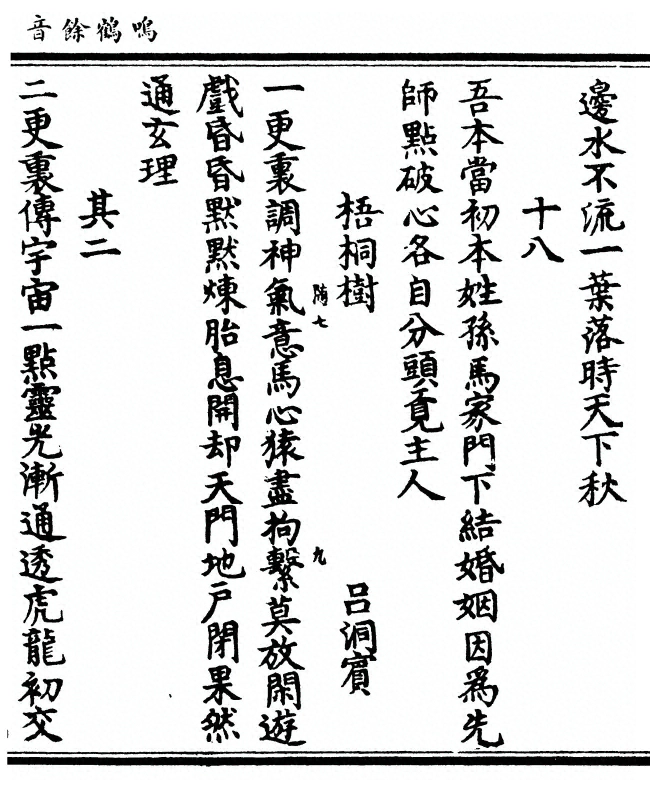 音餘鶴鳴
邊水不流一葉落時天下秋
十八
吾本當初本姓孫馬家門下結婚姻因爲先
師點破心各自分頭覓主人
梧桐樹 呂洞賓
一更裏調神氣意馬心猿盡拘繫莫放閑遊
隋七
九
戲昏昏默默煉胎息開却天門地戶閉果然
通玄理
其二
二更裏傳宇宙一點靈光漸通透虎龍初交